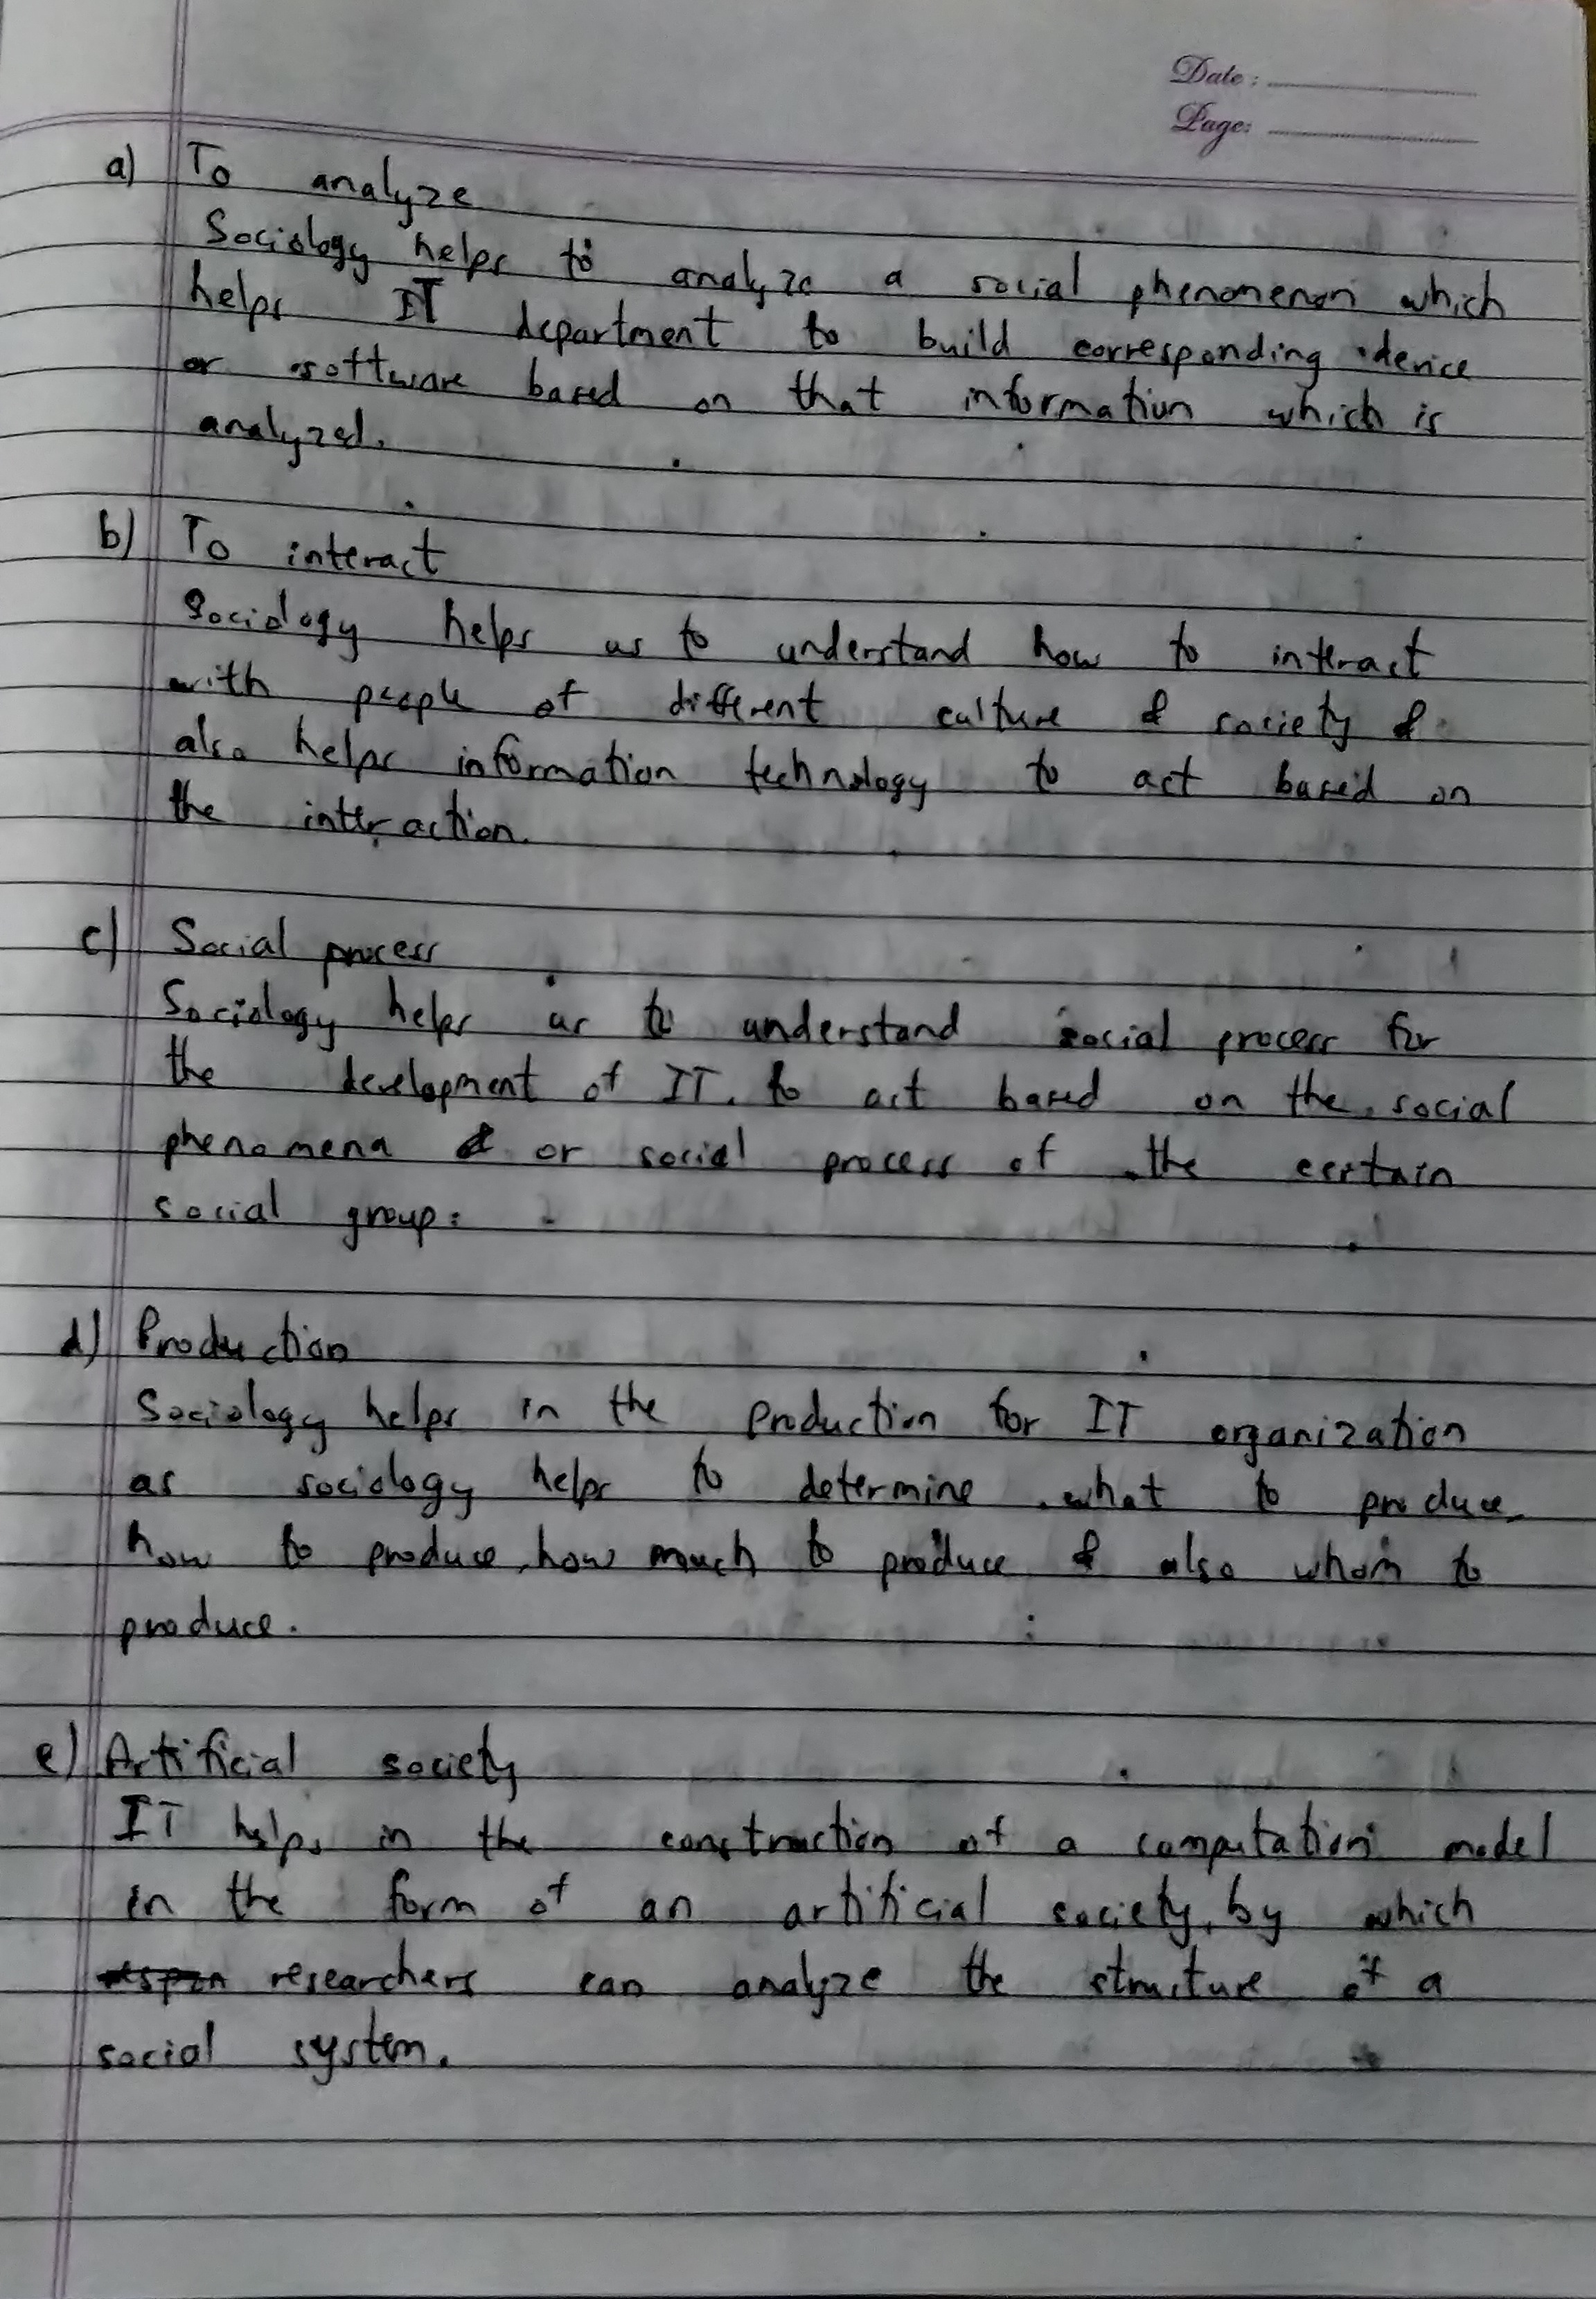 Date:
Page:
a) To analyze
Sociology helps to analyze a social phenomenon which
helps IT department to build corresponding device
or software based on that information which is
analyzed.
b) To interact
Sociology helps us to understand how to interact
with people of different culture & society &
also helps information technology to act based on
the interaction.
c) Social process
Sociology helps us to understand social process for
the development of IT. to act based on the social
phenomena & or social process of the certain
social group.
d) Production
Sociology helps in the production for IT organization
as sociology helps to determine what to produce,
how to produce, how much to produce & also whom to
produce.
e) Artificial society
IT helps in the construction of a computation model
in the form of an artificial society, by which
researchers can analyze the structure of a
social system.